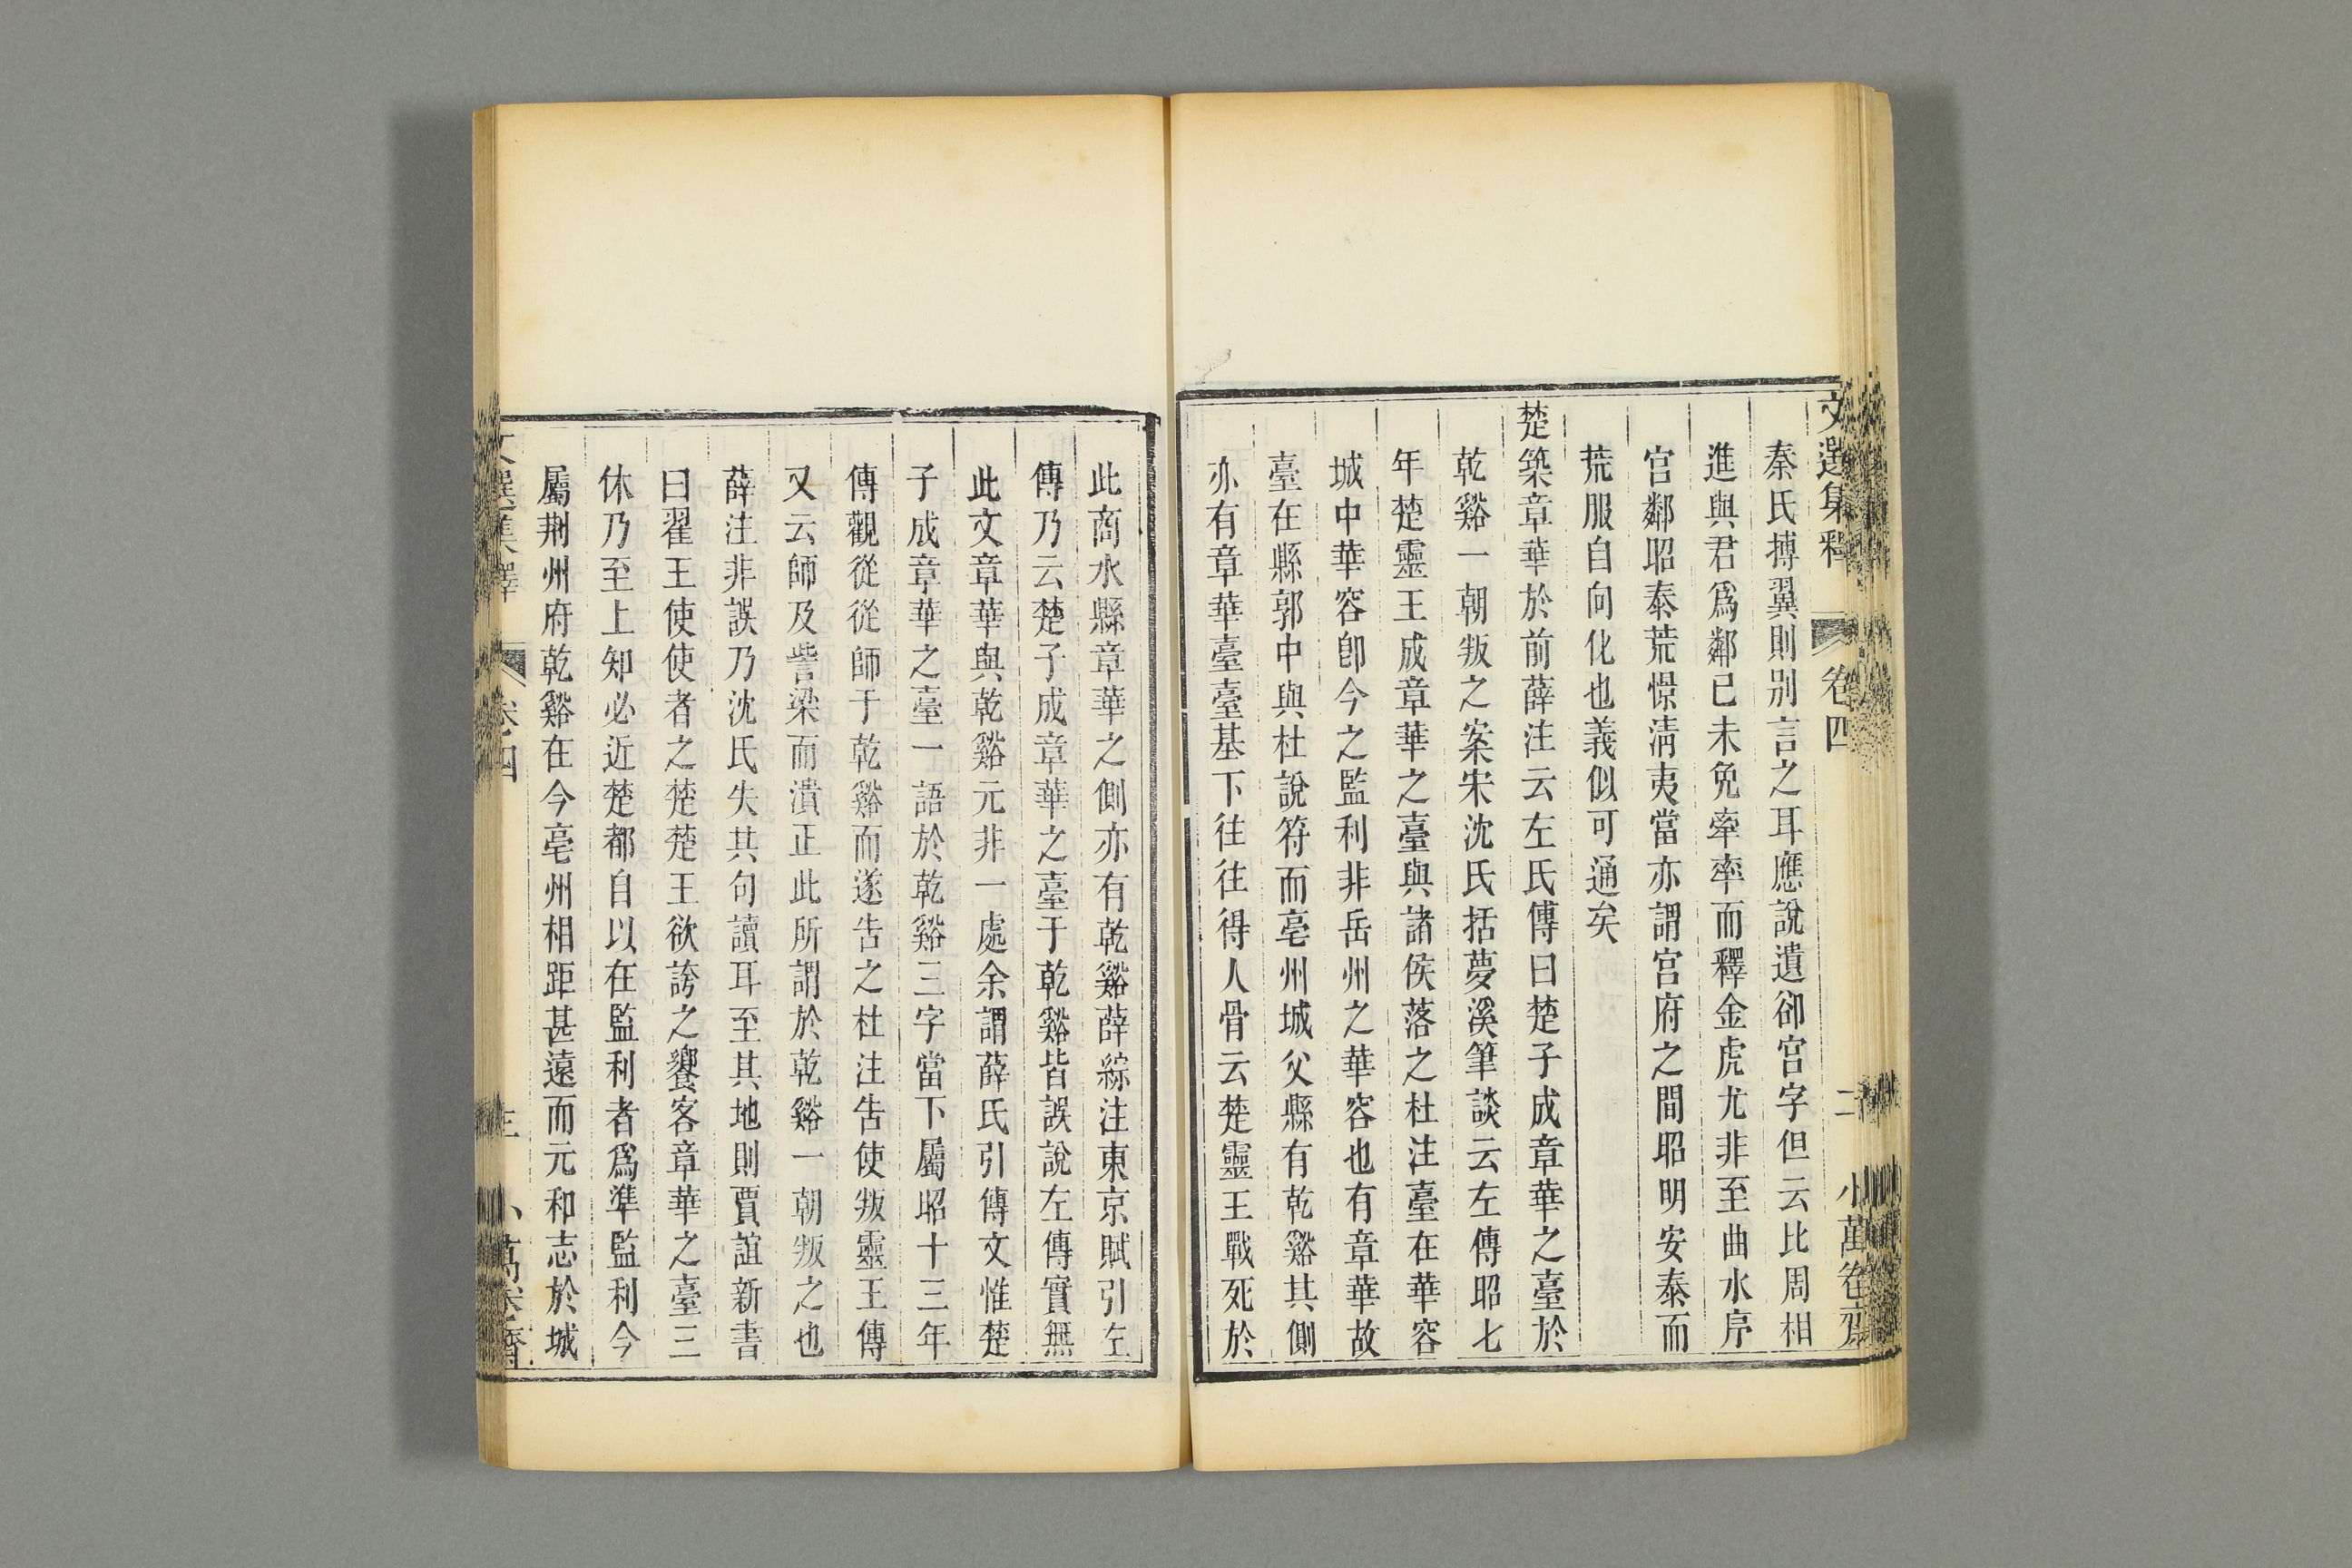 文選集釋 卷四 二 小萬卷齋
秦氏搏翼則別言之耳應說遺卻宫字但云比周相
進與君爲鄰已未免牽率而釋金虎尤非至曲水序
宫鄰昭泰荒憬清夷當亦謂宫府之間昭明安泰而
荒服自向化也義似可通矣
楚築章華於前薛注云左氏傳曰楚子成章華之臺於
乾谿一朝叛之案宋沈氏括夢溪筆談云左傳昭七
年楚靈王成章華之臺與諸侯落之杜注臺在華容
城中華容卽今之監利非岳州之華容也有章華故
臺在縣郭中與杜說符而亳州城父縣有乾谿其側
亦有章華臺臺基下往往得人骨云楚靈王戰死於
此商水縣章華之側亦有乾谿薛綜注東京賦引左
傳乃云楚子成章華之臺于乾谿皆誤說左傳實無
此文章華與乾谿元非一處余謂薛氏引傳文惟楚
子成章華之臺一語於乾谿三字當下屬昭十三年
傳觀從從師于乾谿而遂告之杜注告使叛靈王傳
又云師及訾梁而潰正此所謂於乾谿一朝叛之也
薛注非誤乃沈氏失其句讀耳至其地則賈誼新書
曰翟王使使者之楚楚王欲誇之饗客章華之臺三
休乃至上知必近楚都自以在監利者爲準監利今
屬荆州府乾谿在今亳州相距甚遠而元和志於城
選集釋 卷四 三 萬卷齋